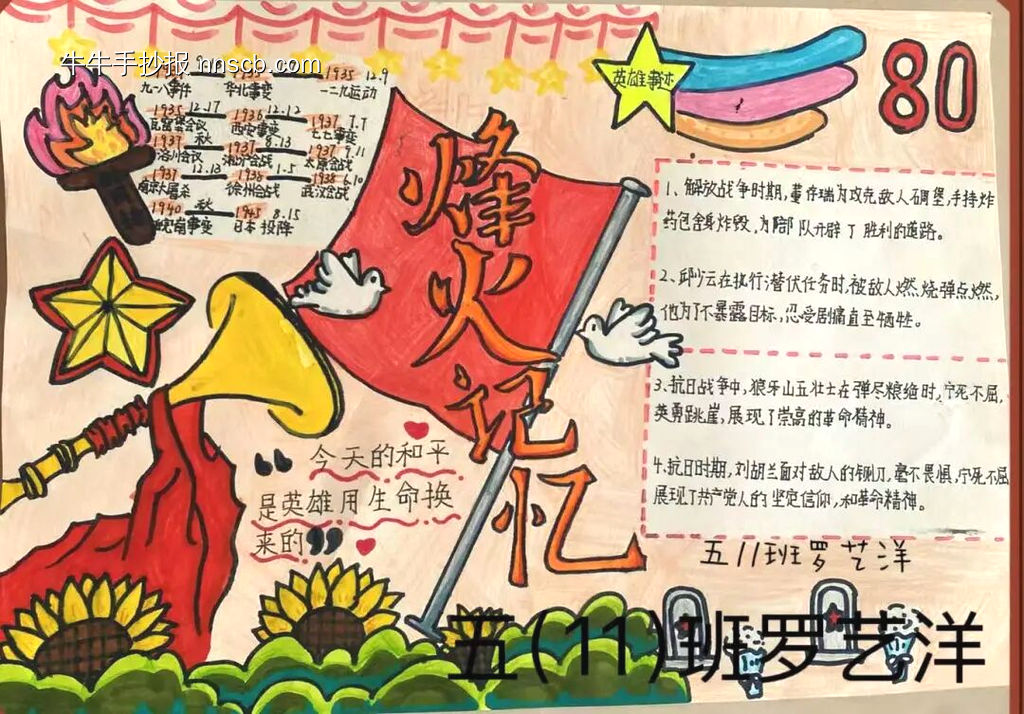 牛牛手抄报 nnscb.com
1935 12.9
九一八事件 华北事变 一二九运动
1935 12.17 1936 12.12 1937 7.7
瓦窑堡会议 西安事变 七七事变
1937 秋 1937 8.13 1937 9.11
洛川会议 淞沪会战 太原会战
1937 12.13 1938 1.5 1938 6.10
南京大屠杀 徐州会战 武汉会战
1940 秋 1945 8.15
皖南事变 日本投降
烽火记忆
英雄事迹
80
1、解放战争时期,董存瑞为攻克敌人碉堡,手持炸
药包舍身炸毁,为部队开辟了胜利的道路。
2、邱少云在执行潜伏任务时,被敌人燃烧弹点燃,
他为了不暴露目标,忍受剧痛直至牺牲。
3、抗日战争中,狼牙山五壮士在弹尽粮绝时,宁死不屈,
英勇跳崖,展现了崇高的革命精神。
4、抗日时期,刘胡兰面对敌人的铡刀,毫不畏惧,宁死不屈
展现了共产党人的坚定信仰,和革命精神。
“今天的和平
是英雄用生命换
来的”
五11班罗艺洋
五(11)班罗艺洋